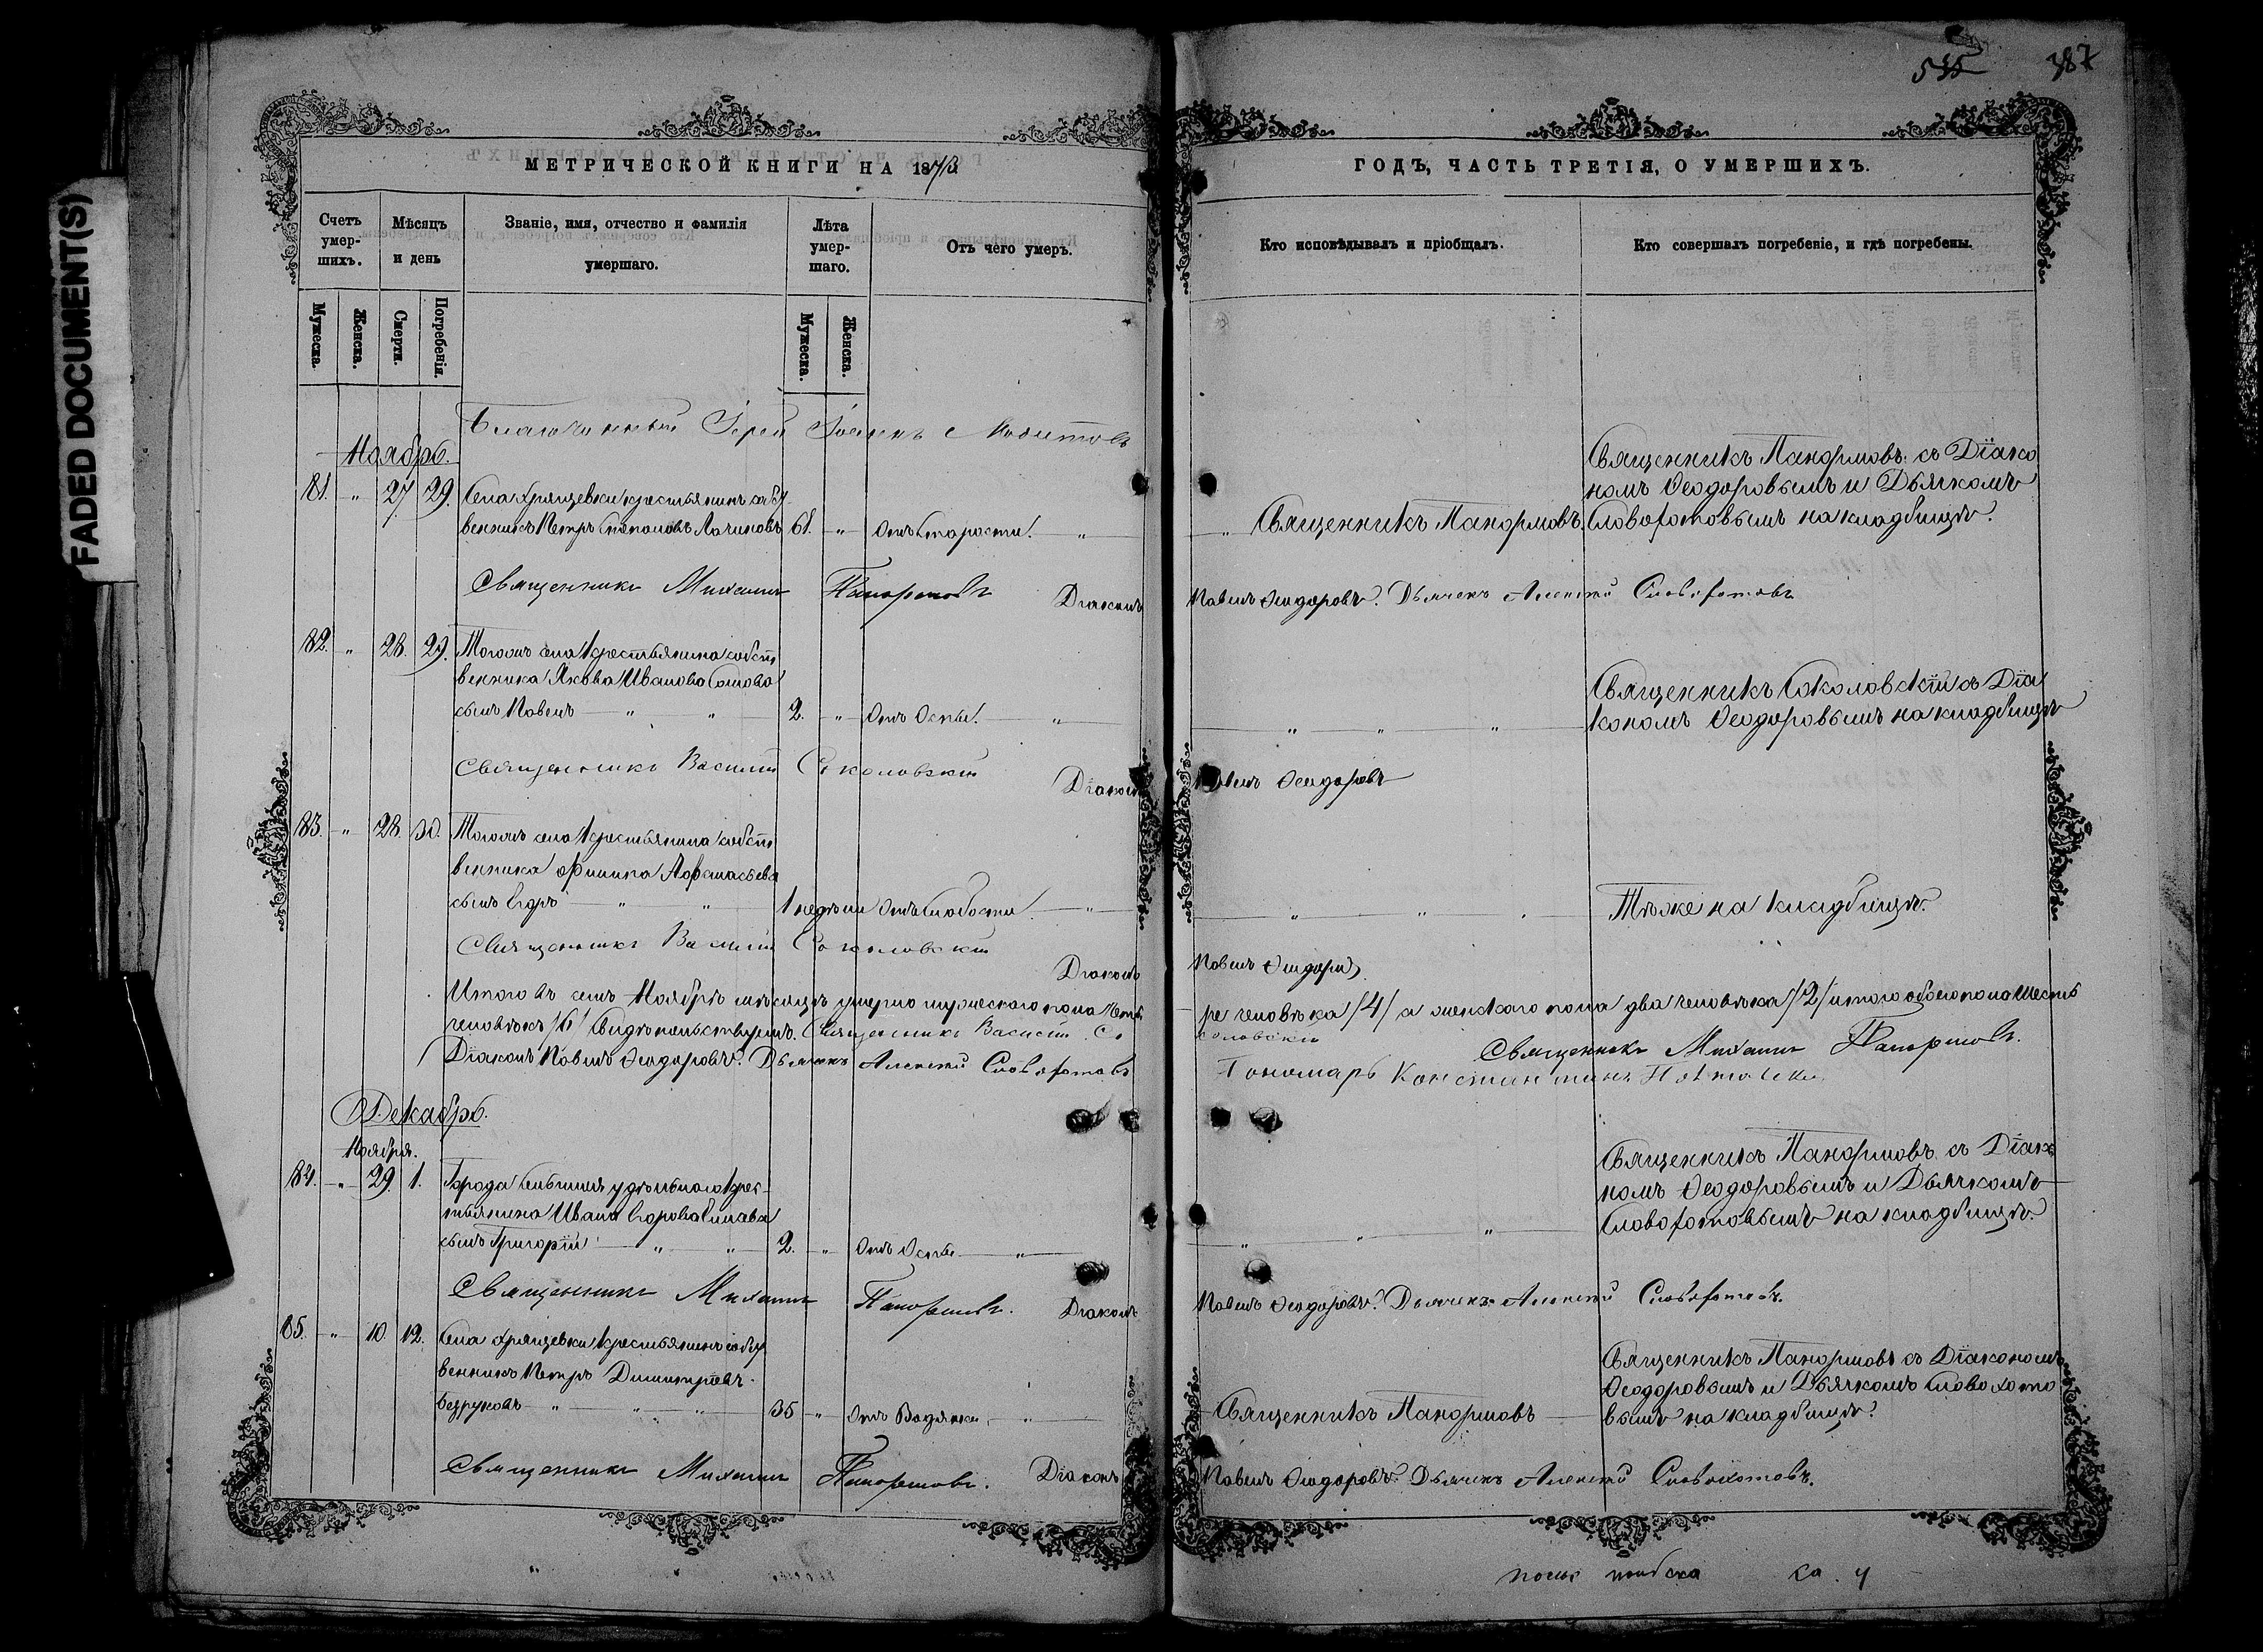 FADED DOCUMENT(S)
535
387
МЕТРИЧЕСКОЙ КНИГИ НА 1873
Счетъ умер-шихъ.
Мѣсяцъ и день
Званіе, имя, отчество и фамилія умершаго.
Лѣта умер-шаго.
Отъ чего умеръ.
Мужеска.
Женска.
Смерти.
Погребенія.
Мужеска.
Женска.
ГОДЪ, ЧАСТЬ ТРЕТІЯ, О УМЕРШИХЪ.
Кто исповѣдывалъ и пріобщалъ.
Кто совершалъ погребеніе, и гдѣ погребены.
Благочинный Іерей Іоаннъ
Ноябрь.
81. " 27 29. Села Хрящевки крестьянинъ собст
венникъ Петръ Лачиновъ 61. " Отъ старости. "
" Священникъ Панормовъ.
Священникъ Панормовъ съ Діако
номъ Ѳеодоровымъ и Дьячкомъ
Словохотовымъ на кладбищѣ.
Священникъ Михаилъ Панормовъ Діаконъ Павелъ Ѳеодоровъ. Дьячекъ Алексѣй Словохотовъ
82. " 28. 29. Тогожъ села крестьянина собст
венника Якова Иванова
сынъ Павелъ " " 2. " Отъ Оспы. "
" " "
Священникъ Соколовскій съ Діа
кономъ Ѳеодоровымъ на кладбищѣ
Священникъ Василій Соколовскій Діаконъ Павелъ Ѳеодоровъ
83. " 28 30. Тогожъ села крестьянина собст
венника Филиппа Афанасьева
сынъ Егоръ " " 1 недѣли Отъ слабости. "
" " "
Тѣже на кладбищѣ.
Священникъ Василій Соколовскій
Діаконъ Павелъ Ѳеодоровъ
Итого въ семъ Ноябрѣ мѣсяцѣ умерло мужескаго пола четы
ре человѣка /4/ а женскаго пола два человѣка /2/ итого обоего пола шесть
человѣкъ /6/ Свидѣтельствуемъ. Священникъ Василій Со
коловскій Священникъ Михаилъ Панормовъ.
Діаконъ Павелъ Ѳеодоровъ. Дьячекъ Алексѣй Словохотовъ
Пономарь Константинъ
Декабрь.
Ноября.
84. " 29. 1. Города удѣльнаго крес-
тьянина Ивана Егорова
сынъ Григорій " " 2. " Отъ Оспы "
" " "
Священникъ Панормовъ съ Діако
номъ Ѳеодоровымъ и Дьячкомъ
Словохотовымъ на кладбищѣ.
Священникъ Михаилъ Панормовъ. Діаконъ Павелъ Ѳеодоровъ. Дьячекъ Алексѣй Словохотовъ.
85. " 10. 12. Села Хрящевки крестьянинъ собст
венникъ Петръ Димитріевъ
Безруковъ " " " 35 " Отъ Водянки. "
Священникъ Панормовъ
Священникъ Панормовъ съ Діакономъ
Ѳеодоровымъ и Дьячкомъ Словохото
вымъ на кладбищѣ.
Священникъ Михаилъ Панормовъ. Діаконъ Павелъ Ѳеодоровъ. Дьячекъ Алексѣй Словохотовъ.